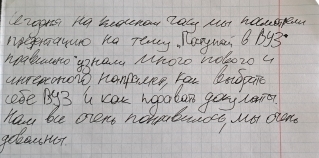 Сегодня на классном часе мы посмотрели
презентацию на тему "Поступай в ВУЗ
правильно" узнали много нового и
интересного например, как выбрать
себе ВУЗ и как подавать документы.
Нам все очень понравилось, мы очень
довольны.